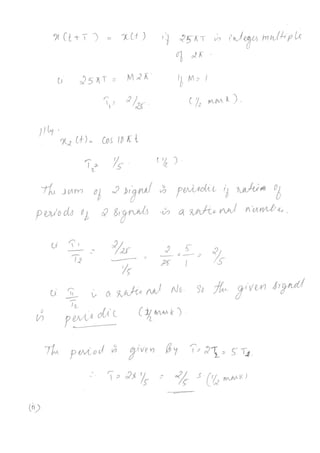 x(t+T) = x(t) if 25πT is integer multiple
of 2π.
ie 25πT = M2π if M=1
T₁ = 2/25 (½ mark).
|||ly.
x₂(t) = cos 10πt
T₂ = 1/5 (½)
The sum of 2 signal is periodic if ratio of
periods of 2 signals is a rational number.
ie T₁/T₂ = (2/25)/(1/5) = 2/25 · 5/1 = 2/5
ie T₁/T₂ is a rational No. So the given signal
is periodic (½ mark).
The period is given by T = 2T₂ = 5T₁
∴ T = 2×1/5 = 2/5 s (½ mark)